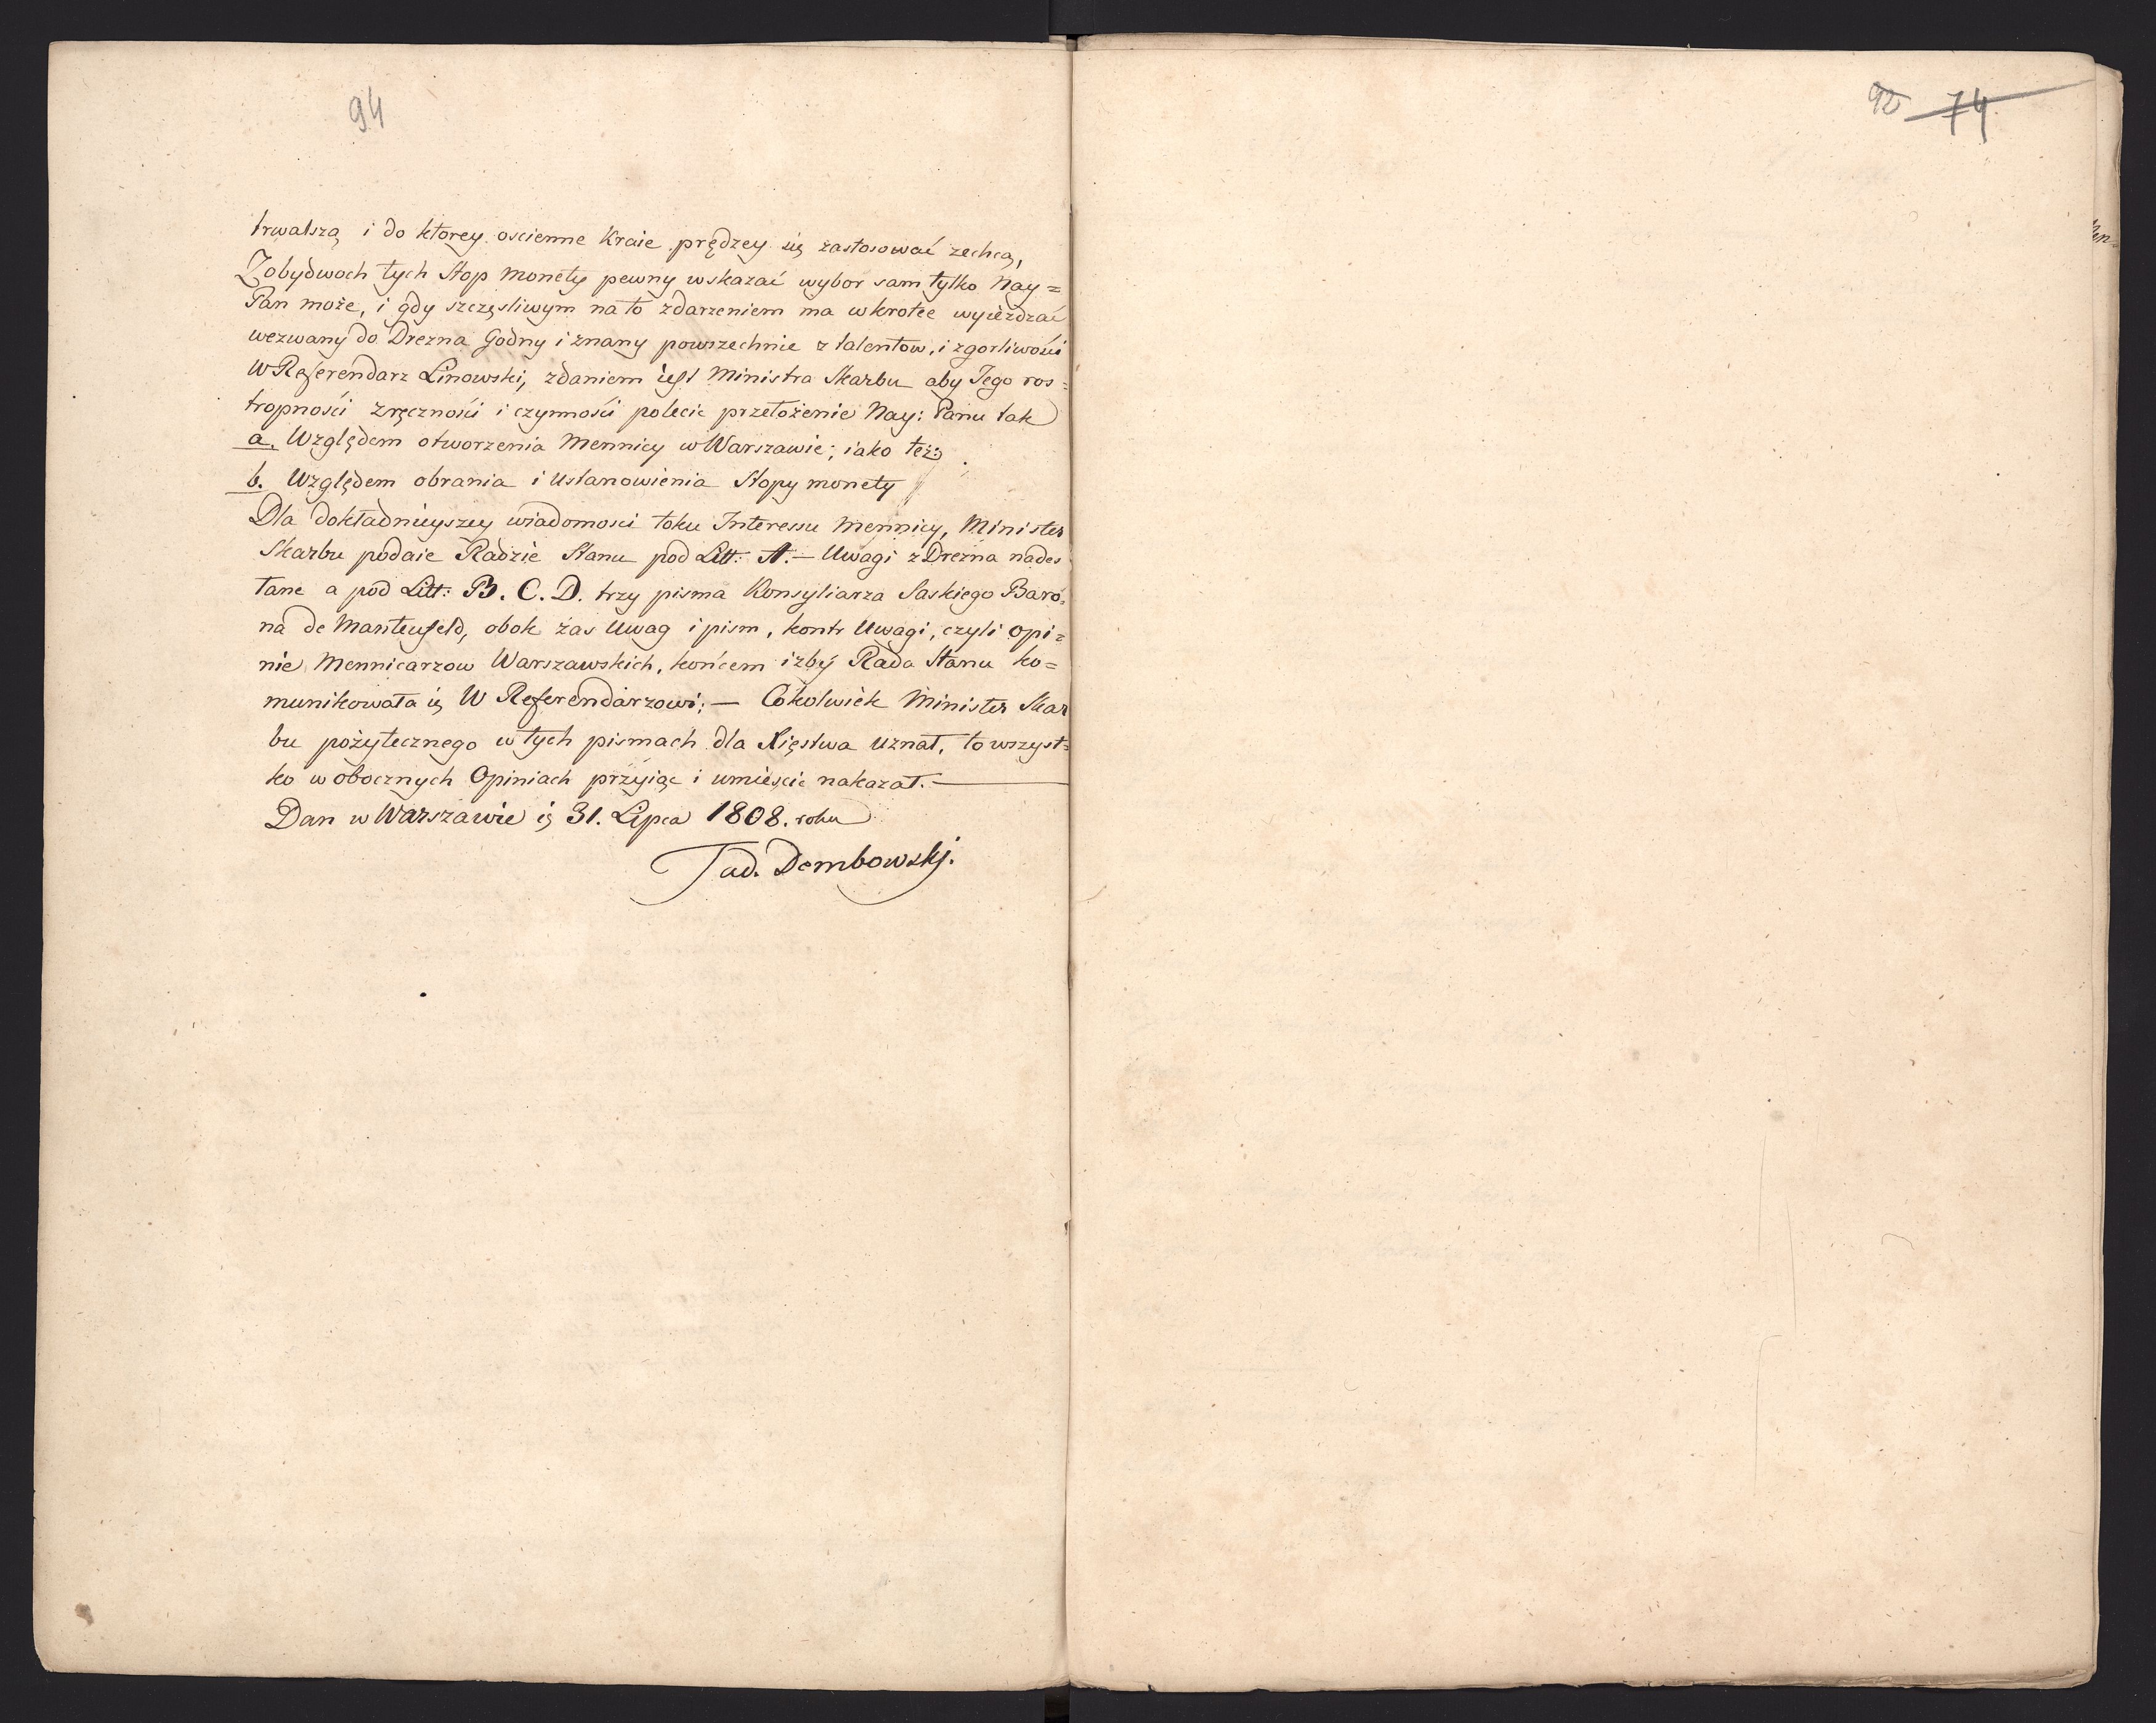 94
trwalszą i do ktorey oscienne Kraie prędzey się zastosować zechcą,
Z obydwoch tych Stop Monety pewny wskazać wybor sam tylko Nay=
Pan może, i gdy szczęsliwym na to zdarzeniem ma wkrotce wyieżdzać
wezwany do Drezna Godny i znany powszechnie z talentow, i zgorliwości
W Referendarz Linowski, zdaniem iest Ministra Skarbu aby Jego ros=
tropności zręczności i czynności polecić przełożenie Nay: Panu tak
a. Względem otworzenia Mennicy w Warszawie; iako też
b. Względem obrania i Ustanowienia Stopy monety
Dla dokładnieyszey wiadomosci toku Interessu Mennicy, Minister
Skarbu podaie Radzie Stanu pod Litt: A. — Uwagi z Drezna nades
łane a pod Litt: B. C. D. trzy pisma Konsyliarza Saskiego Baro=
na de Manteufeld, obok zas Uwag i pism, kontr Uwagi, czyli opi=
nie Mennicarzow Warszawskich, końcem izby Rada Stanu ko=
munikowała ię W Referendarzowi; — Cokolwiek Minister Skar
bu pożytecznego w tych pismach dla Xięstwa Uznał, to wszyst=
ko w obocznych Opiniach przyiąc i umieścić nakazał. —
Dan w Warszawie ię 31. Lipca 1808. roku
Tad. Dembowskj.
92 74
Men=